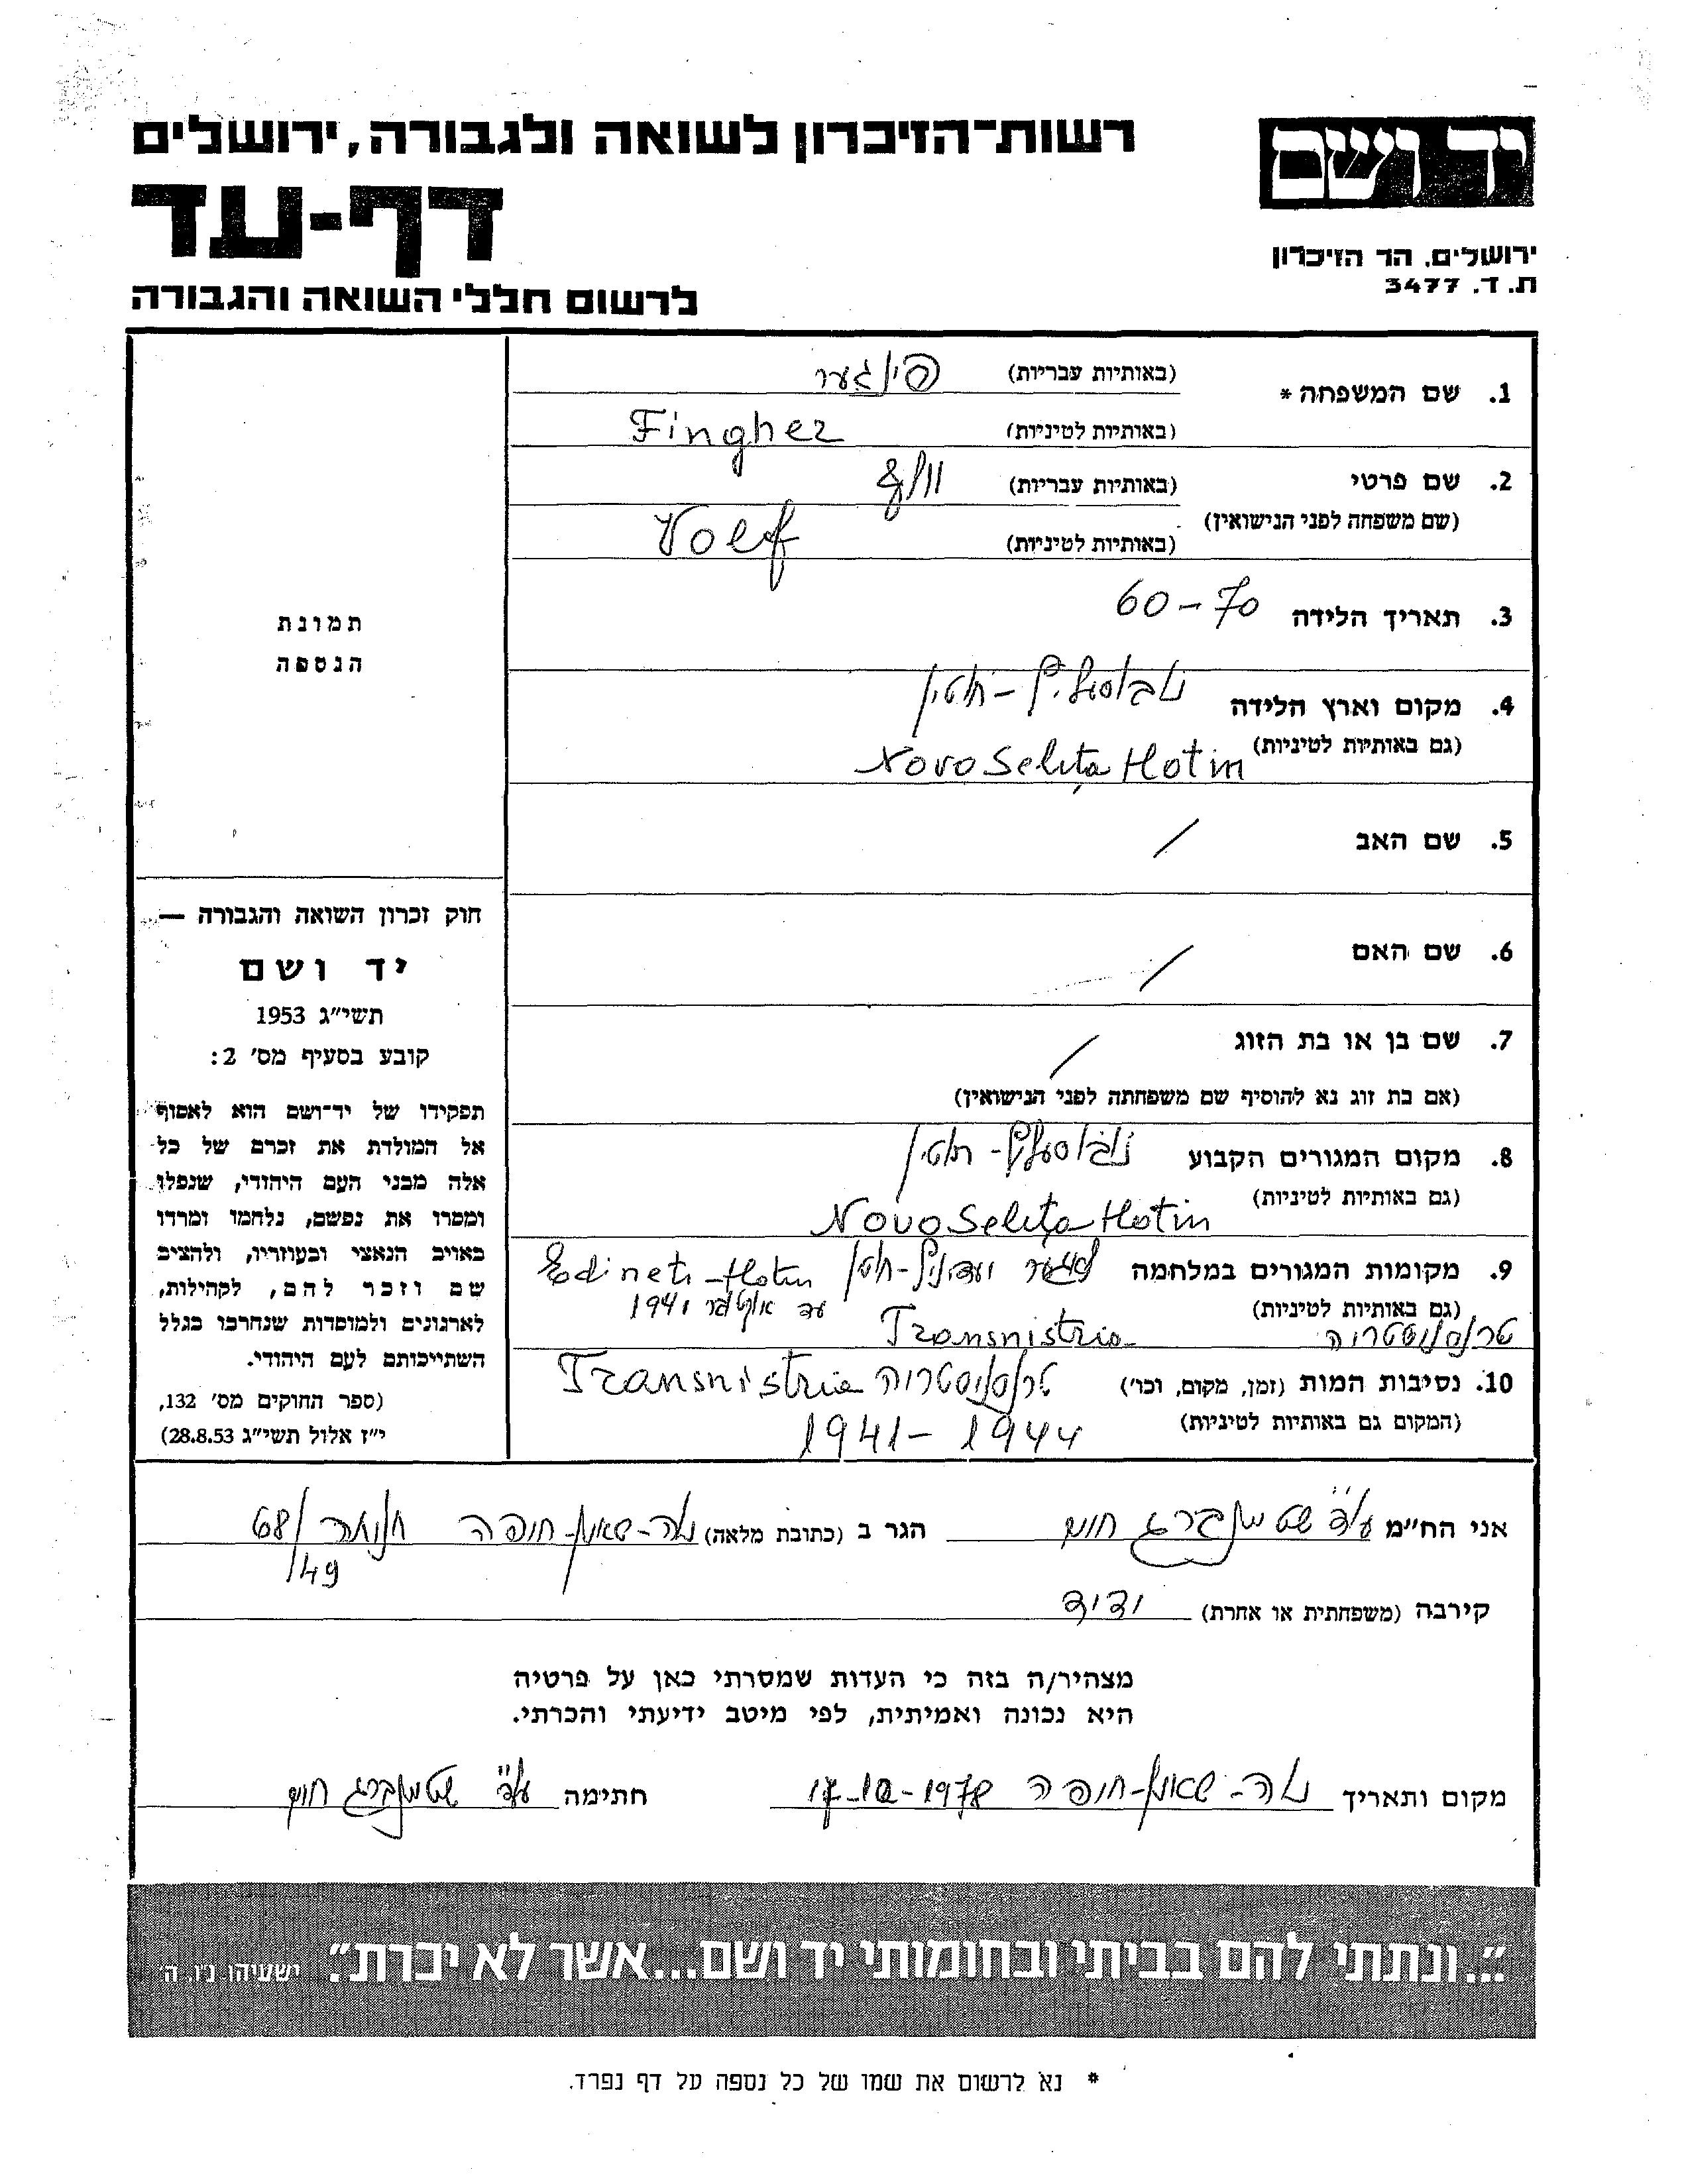 רשות־הזיכרון לשואה ולגבורה, ירושלים
יד ושם
דף-עד
ירושלים, הר הזיכרון
ת. ד. 3477
לרשום חללי השואה והגבורה
1. שם המשפחה * (באותיות עבריות) פינגער
(באותיות לטיניות) Fingher
2. שם פרטי (באותיות עבריות) וולף
(שם משפחה לפני הנישואין)
(באותיות לטיניות) Volf
3. תאריך הלידה 60-70
4. מקום וארץ הלידה נובוסליץ - חוטין
(גם באותיות לטיניות) Novo Selița Hotin
5. שם האב /
6. שם האם /
7. שם בן או בת הזוג /
(אם בת זוג נא להוסיף שם משפחתה לפני הנישואין)
8. מקום המגורים הקבוע נובוסליץ - חוטין
(גם באותיות לטיניות) Novo Selița Hotin
9. מקומות המגורים במלחמה Edineti - Hotin
(גם באותיות לטיניות) עד אוקטובר 1941
טרנסניסטריה Transnistria
10. נסיבות המות (זמן, מקום, וכו') טרנסניסטריה Transnistria
(המקום גם באותיות לטיניות) 1941 - 1944
תמונת
הנספה
חוק זכרון השואה והגבורה —
יד ושם
תשי"ג 1953
קובע בסעיף מס' 2:
תפקידו של יד־ושם הוא לאסוף
אל המולדת את זכרם של כל
אלה מבני העם היהודי, שנפלו
ומסרו את נפשם, נלחמו ומרדו
באויב הנאצי ובעוזריו, ולהציב
שם וזכר להם, לקהילות,
לארגונים ולמוסדות שנחרבו בגלל
השתייכותם לעם היהודי.
(ספר החוקים מס' 132,
י"ז אלול תשי"ג 28.8.53)
אני הח"מ עו"ד שטיינברג חיים הגר ב (כתובת מלאה) נוה-שאנן-חיפה 68/
49/
קירבה (משפחתית או אחרת) ידיד
מצהיר/ה בזה כי העדות שמסרתי כאן על פרטיה
היא נכונה ואמיתית, לפי מיטב ידיעתי והכרתי.
מקום ותאריך נוה-שאנן-חיפה 17-10-1978 חתימה עו"ד שטיינברג חיים
"...ונתתי להם בביתי ובחומותי יד ושם...אשר לא יכרת". ישעיהו נ"ו, ה'
* נא לרשום את שמו של כל נספה על דף נפרד.